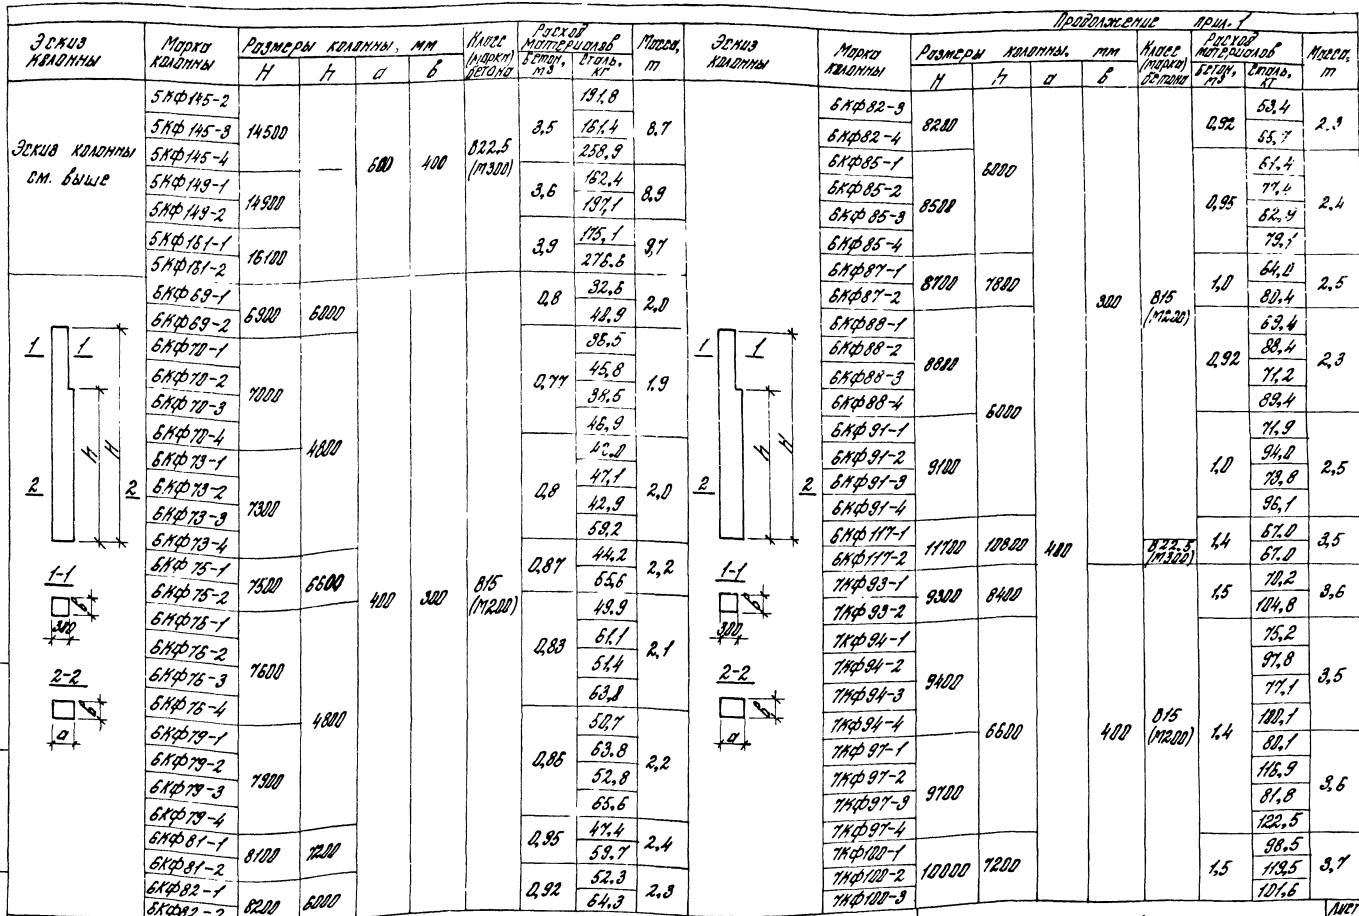 Продолжение прил. 1
Эскиз колонны | Марка колонны | Размеры колонны, мм | Класс (марка) бетона | Расход материалов | Масса, т
H | h | a | в | Бетон, м3 | Сталь, кг
Эскиз колонны см. выше
5КФ145-2 | 14500 | — | 600 | 400 | В22,5 (М300) | 3,5 | 191.8 | 8.7
5КФ145-3 | 161.4
5КФ145-4 | 258,9
5КФ149-1 | 14900 | 3,6 | 162.4 | 8,9
5КФ149-2 | 197,1
5КФ161-1 | 16100 | 3,9 | 175,1 | 9,7
5КФ161-2 | 276.6
6КФ69-1 | 6900 | 6000 | 400 | 300 | В15 (М200) | 0,8 | 32,6 | 2,0
6КФ69-2 | 40.9
6КФ70-1 | 7000 | 4800 | 0,77 | 1.9
6КФ70-2 | 45,8
6КФ70-3 | 38,5
6КФ70-4 | 46,9
6КФ73-1 | 7300 | 0,8 | 2,0
6КФ73-2 | 47,1
6КФ73-3 | 42,9
6КФ73-4 | 59,2
6КФ75-1 | 7500 | 6600 | 0,87 | 44,2 | 2,2
6КФ75-2 | 65,6
6КФ76-1 | 7600 | 4800 | 0,83 | 49,9 | 2,1
6КФ76-2 | 61,1
6КФ76-3 | 51,4
6КФ76-4 | 63,8
6КФ79-1 | 7900 | 0,86 | 50,7 | 2,2
6КФ79-2 | 63.8
6КФ79-3 | 52,8
6КФ79-4 | 65,6
6КФ81-1 | 8100 | 7200 | 0,95 | 47.4 | 2,4
6КФ81-2 | 59.7
6КФ82-1 | 8200 | 6000 | 0,92 | 52.3 | 2,3
6КФ82-2 | 64,3
1 1
h H
2 2
1-1
в
300
2-2
в
a
Эскиз колонны | Марка колонны | Размеры колонны, мм | Класс (марка) бетона | Расход материалов | Масса, т
H | h | a | в | Бетон, м3 | Сталь, кг
6КФ82-3 | 8200 | 6000 | 400 | 300 | В15 (М200) | 0,92 | 53.4 | 2.3
6КФ82-4 | 65,7
6КФ85-1 | 8500 | 0,95 | 61.4 | 2,4
6КФ85-2 | 77,4
6КФ85-3 | 62,9
6КФ85-4 | 79,1
6КФ87-1 | 8700 | 7800 | 1,0 | 64,0 | 2,5
6КФ87-2 | 80,4
6КФ88-1 | 8800 | 6000 | 0,92 | 69,4 | 2,3
6КФ88-2 | 88,4
6КФ88-3 | 71,2
6КФ88-4 | 89,4
6КФ91-1 | 9100 | 1,0 | 71,9 | 2,5
6КФ91-2 | 94,0
6КФ91-3 | 73,8
6КФ91-4 | 96,1
6КФ117-1 | 11700 | 10800 | В22,5 (М300) | 1,4 | 67.0 | 3,5
6КФ117-2 | 67.0
7КФ93-1 | 9300 | 8400 | 400 | В15 (М200) | 1,5 | 70,2 | 3,6
7КФ93-2 | 104,8
7КФ94-1 | 9400 | 6600 | 1,4 | 75,2 | 3,5
7КФ94-2 | 97,8
7КФ94-3 | 77,1
7КФ94-4 | 100,1
7КФ97-1 | 9700 | 80,1 | 3,6
7КФ97-2 | 116,9
7КФ97-3 | 81,8
7КФ97-4 | 122,5
7КФ100-1 | 10000 | 7200 | 1,5 | 98,5 | 3,7
7КФ100-2 | 119,5
7КФ100-3 | 101,6
1 1
h H
2 2
1-1
в
300
2-2
в
a
Лист